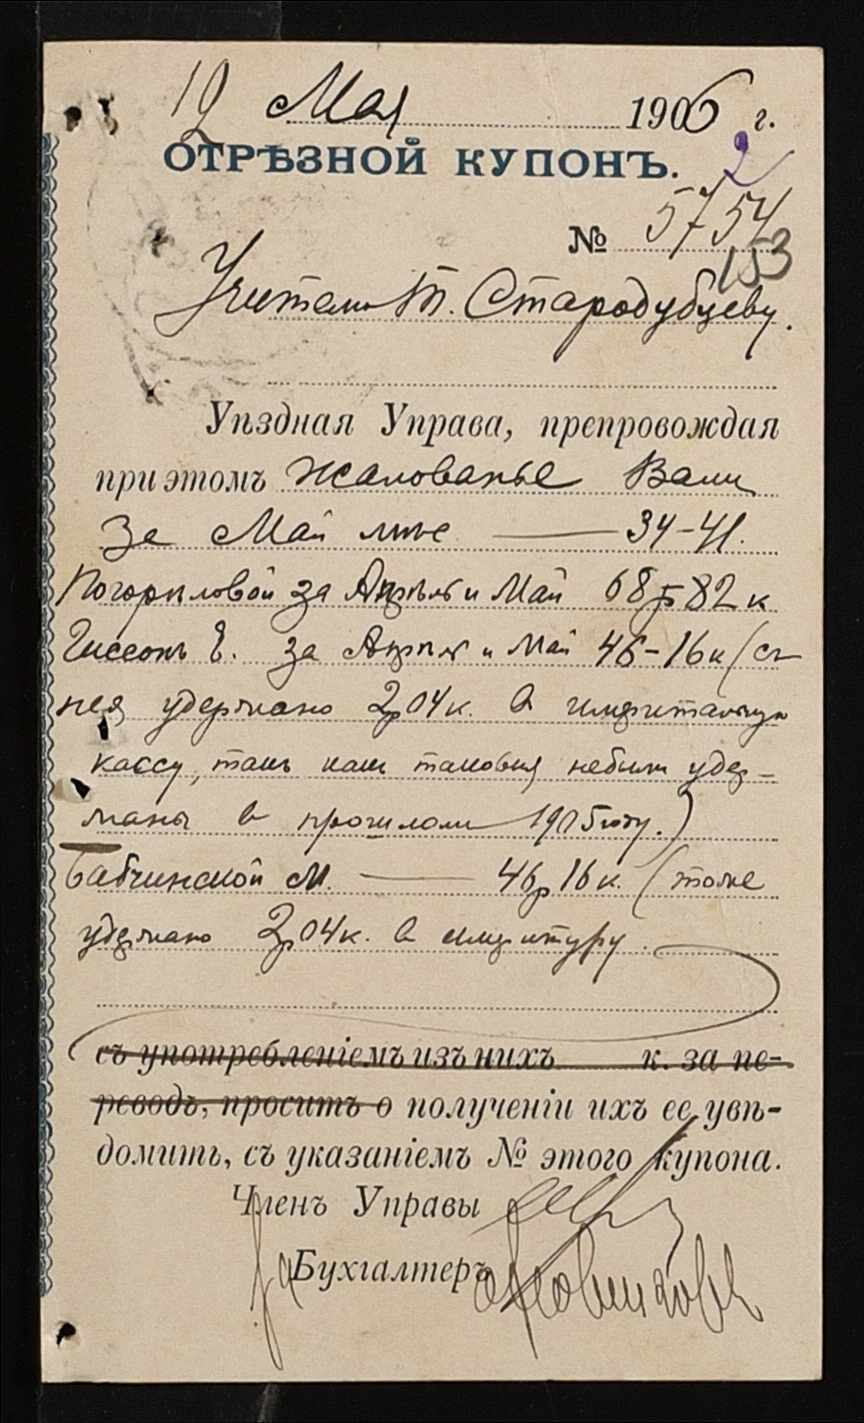 12 Мая 1906 г.
2
ОТРѢЗНОЙ КУПОНЪ.
№ 5754
153
Учителю Т. Стародубцеву.
Уѣздная Управа, препровождая
при этомъ жалованье Вамъ
за Май мѣс — 34-41.
Погорѣловой за Апрѣль и Май 68р 82к
Гиссонъ Е. за Апрѣль и Май 46-16к (съ
нея удержано 2р04к. в эмеритальную
кассу, такъ какъ таковыя небыли удер-
жаны в прошломъ 1905 году.)
Бабчинской М. — 46р 16к. (тоже
удержано 2р04к. в эмеритуру.
съ употребленіемъ изъ нихъ к. за пе-
реводъ, проситъ о полученіи ихъ ее увѣ-
домить, съ указаніемъ № этого купона.
Членъ Управы
За Бухгалтеръ